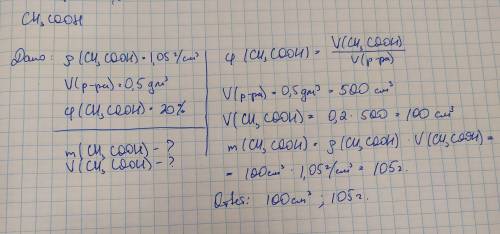 CH₃COOH
Дано: ρ(CH₃COOH) = 1,05 г/см³
V(р-ра) = 0,5 дм³
φ(CH₃COOH) = 20%
m(CH₃COOH) - ?
V(CH₃COOH) - ?
φ(CH₃COOH) = V(CH₃COOH) / V(р-ра)
V(р-ра) = 0,5 дм³ = 500 см³
V(CH₃COOH) = 0,2 · 500 = 100 см³
m(CH₃COOH) = ρ(CH₃COOH) · V(CH₃COOH) =
= 100 см³ · 1,05 г/см³ = 105 г.
Ответ: 100 см³ ; 105 г.